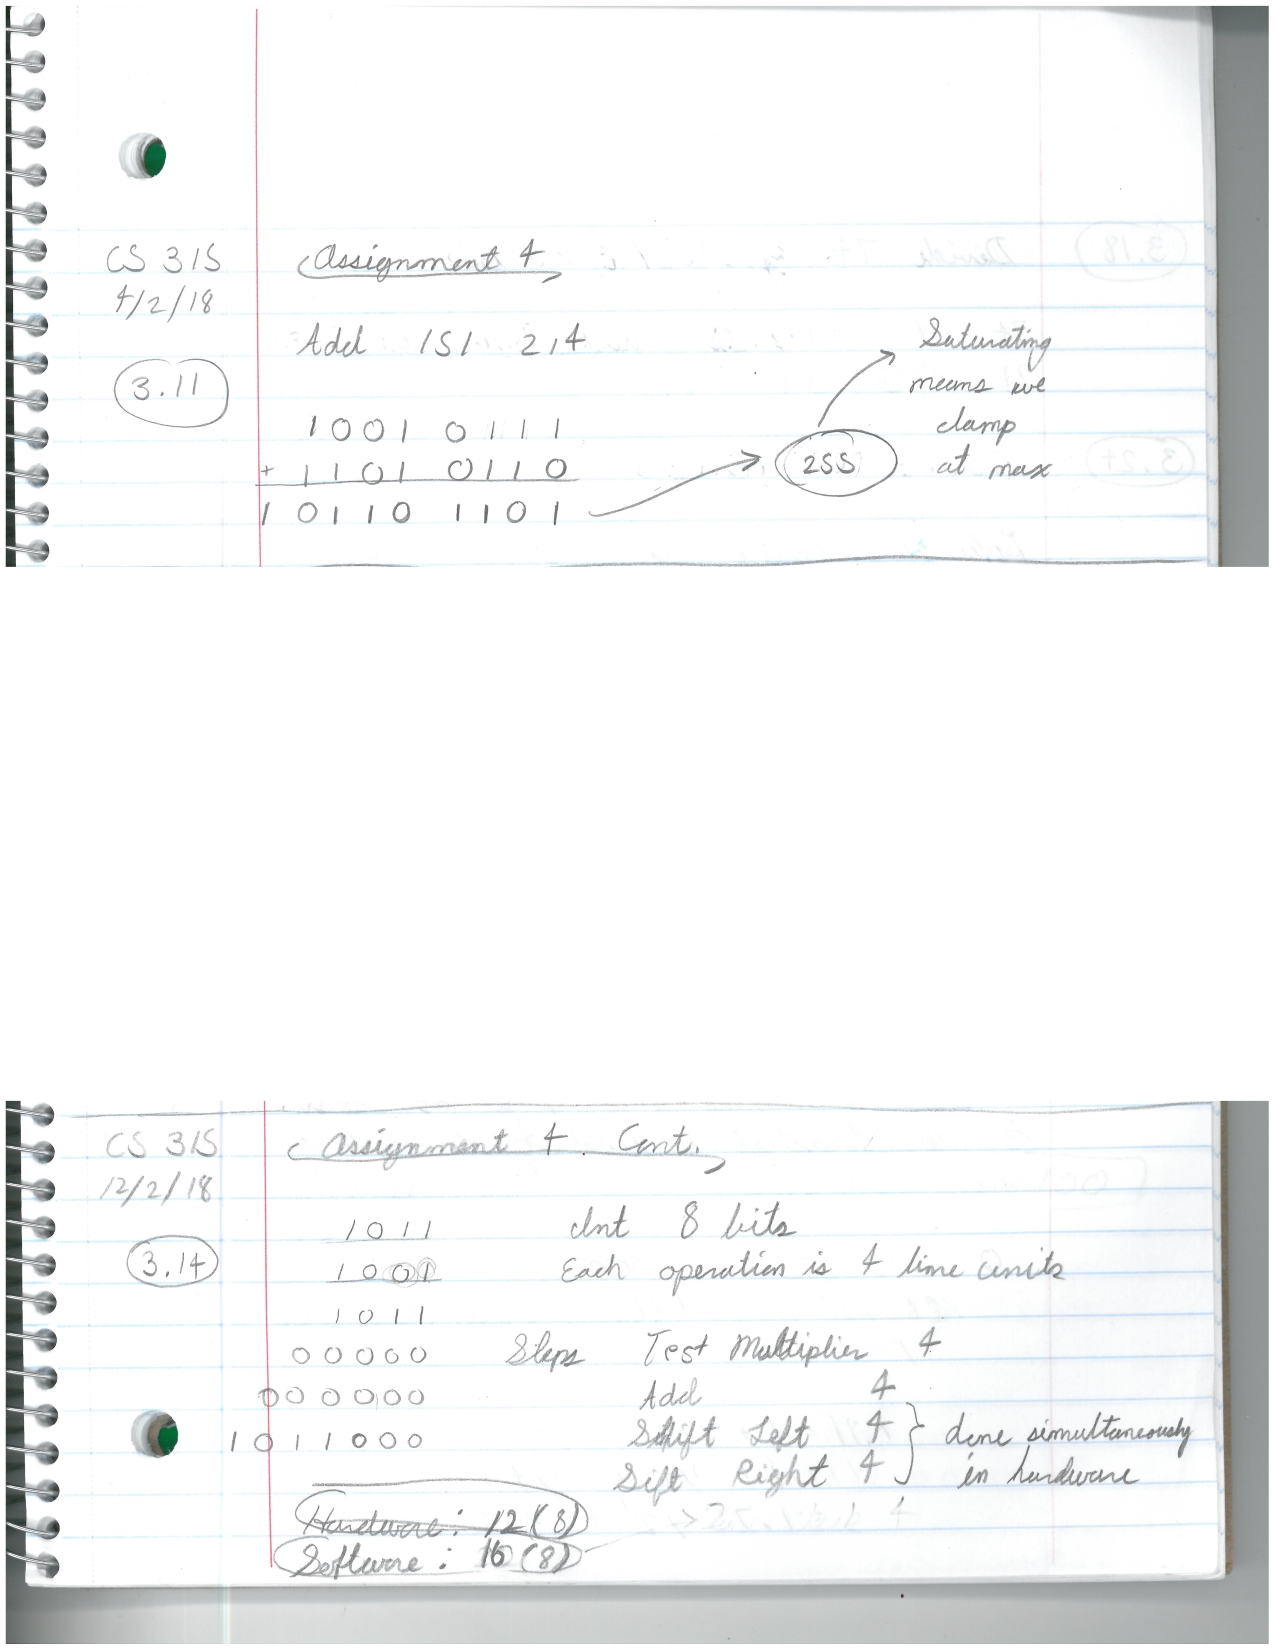 CS 315
Assignment 4
4/2/18
Add 151 214
3.11
1001 0111
+ 1101 0110
1 0110 1101
255
Saturating
means we
clamp
at max
CS 315
Assignment 4 Cont.
12/2/18
3.14
1011
1001
1011
00000
000000
1011000
Int 8 bits
Each operation is 4 time units
Steps Test Multiplier 4
Add 4
Shift Left 4
Sift Right 4
done simultaneously
in hardware
Hardware: 12(8)
Software: 16(8)